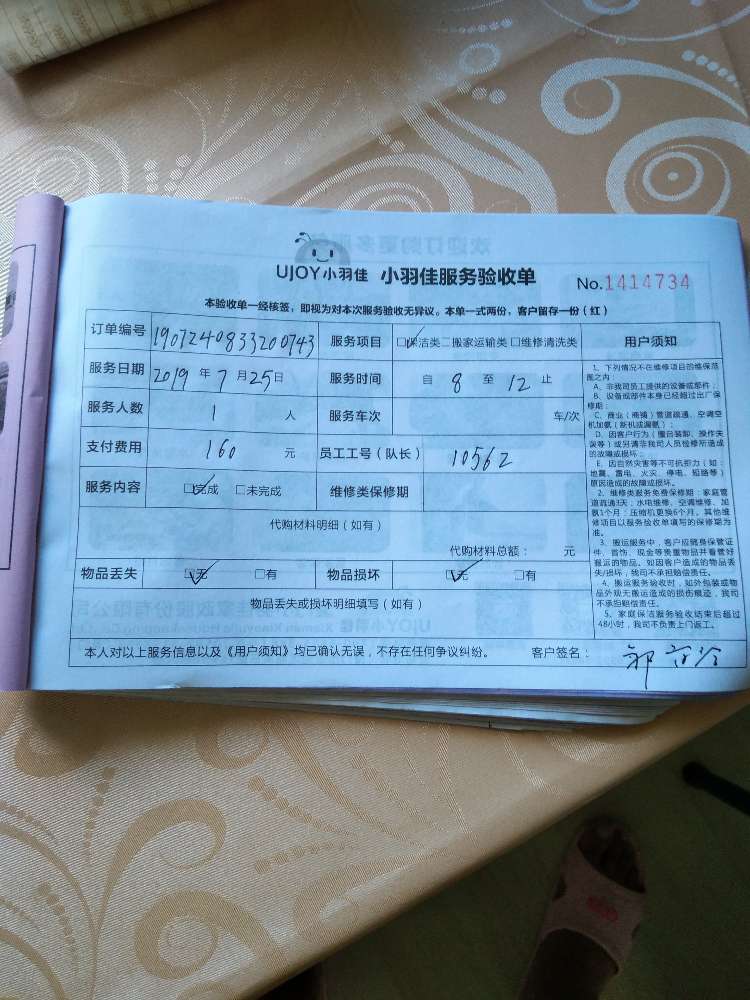 UJOY小羽佳 小羽佳服务验收单 No.1414734
本验收单一经核签，即视为对本次服务验收无异议。本单一式两份，客户留存一份（红）
订单编号 1907240833200743 服务项目 □保洁类□搬家运输类□维修清洗类 用户须知
服务日期 2019 年 7 月 25 日 服务时间 自 8 至 12 止
服务人数 1 人 服务车次 车/次
支付费用 160 元 员工工号（队长） 10562
服务内容 ☑完成 □未完成 维修类保修期
代购材料明细（如有）
代购材料总额： 元
物品丢失 ☑无 □有 物品损坏 ☑无 □有
物品丢失或损坏明细填写（如有）
1、下列情况不在维修项目的维保范
围之内：
A、非我司员工提供的设备或部件；
B、设备或部件本身已经超过出厂保
修期；
C、商业（商铺）管道疏通、空调空
机加氨（新机或漏氨）；
D、因客户行为（擅自装卸、操作失
误等）或另请非我司人员检修所造成
的故障或损坏；
E、因自然灾害等不可抗拒力（如：
地震、雷电、火灾、停电、短路等）
原因造成的故障或损坏。
2、维修类服务免费保修期：家庭管
道疏通3天；水电维修、空调维修、加
氨1个月；压缩机更换6个月。其他维
修项目以服务验收单填写的保修期为
准。
3、搬运服务中，客户应随身保管证
件、首饰、现金等贵重物品并看管好
搬运的物品。如因客户造成的物品丢
失/损坏，我司不承担赔偿责任。
4、搬运服务验收时，如外包装或物
品外观无搬运造成的损伤痕迹，我司
不承担赔偿责任。
5、家庭保洁服务验收结束后超过
48小时，我司不负责上门返工。
本人对以上服务信息以及《用户须知》均已确认无误，不存在任何争议纠纷。 客户签名：